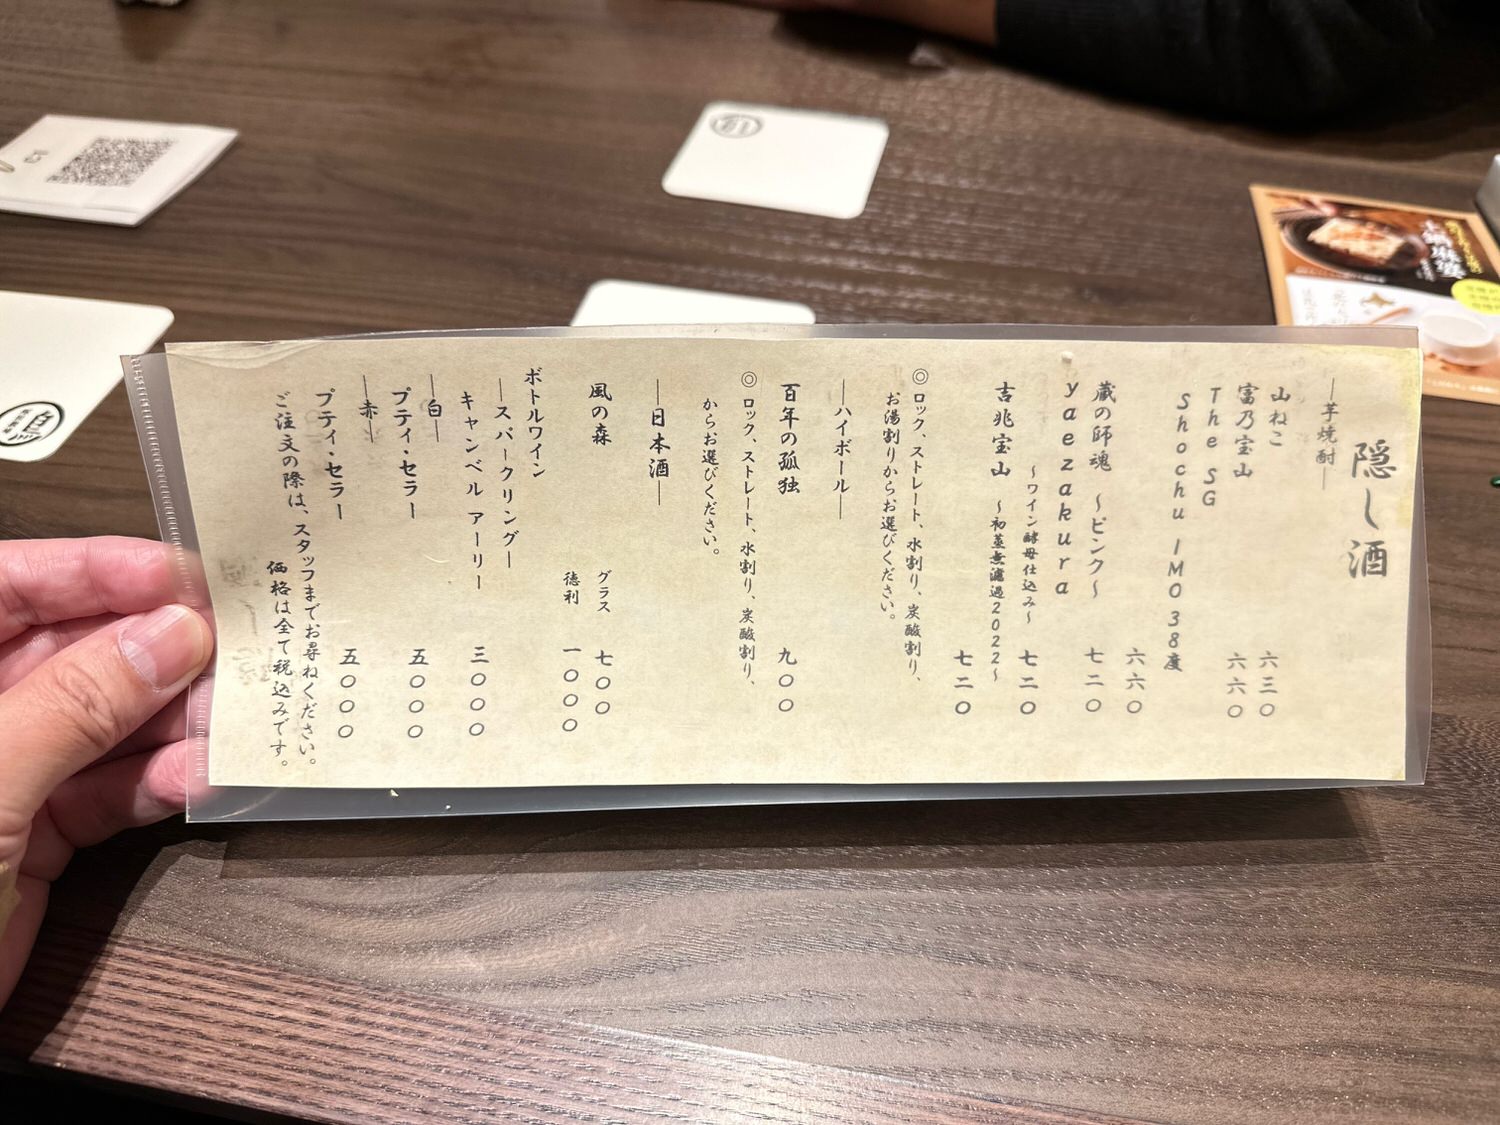 隠し酒
―芋焼酎―
山ねこ 六三〇
富乃宝山 六六〇
The SG
Shochu IMO 38度
六六〇
蔵の師魂 ～ピンク～ 七二〇
yaezakura
～ワイン酵母仕込み～ 七二〇
吉兆宝山 ～初蒸無濾過2022～
七二〇
◎ロック、ストレート、水割り、炭酸割り、
お湯割りからお選びください。
―ハイボール―
百年の孤独 九〇〇
◎ロック、ストレート、水割り、炭酸割り、
からお選びください。
―日本酒―
風の森 グラス 七〇〇
徳利 一〇〇〇
ボトルワイン
―スパークリング―
キャンベル アーリー 三〇〇〇
―白―
プティ・セラー 五〇〇〇
―赤―
プティ・セラー 五〇〇〇
ご注文の際は、スタッフまでお尋ねください。
価格は全て税込みです。